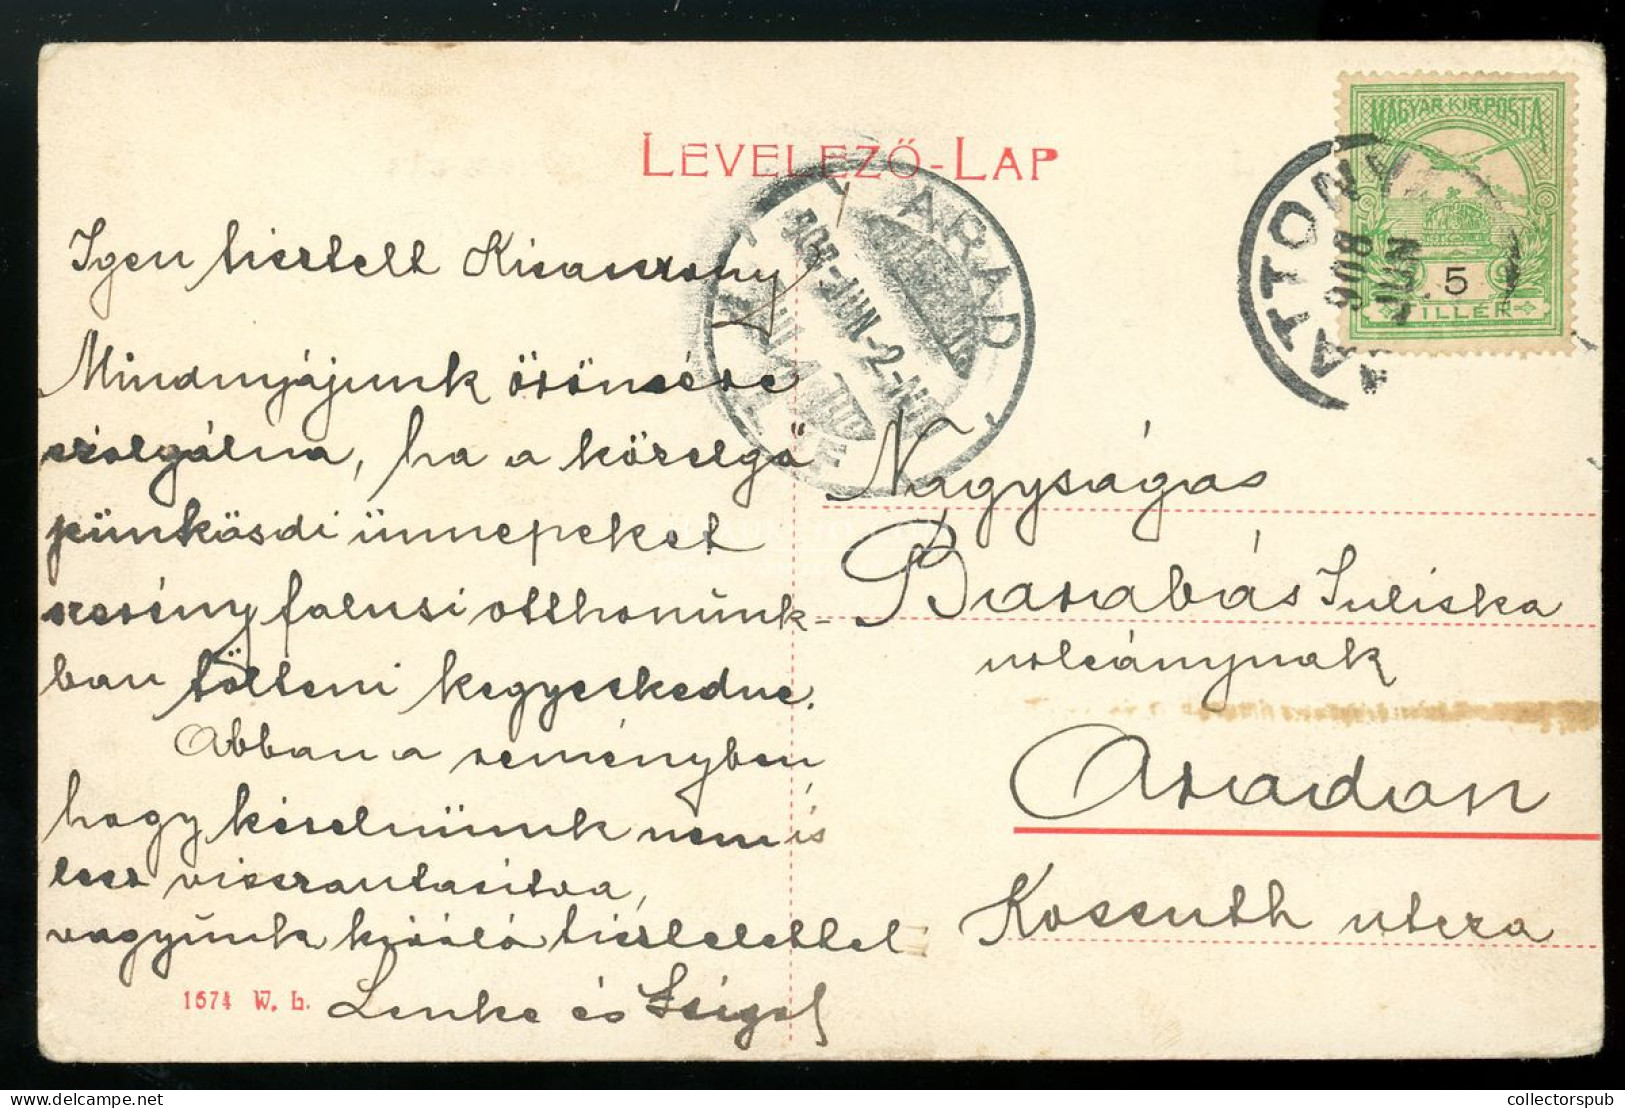 LEVELEZŐ-LAP
MAGYAR KIR. POSTA
5
FILLÉR
ATTONYA
908
JUN
ARAD
908 JUN -2
Igen tisztelt Kisasszony
Mindnyájunk örömére
szolgálna, ha a közelgő
pünkösdi ünnepeket
szerény falusi otthonunk-
ban tölteni kegyeskedne.
Abban a reményben,
hogy kérelmünk nem is
lesz visszautasítva,
vagyunk kiváló tisztelettel
Lenke és
1674 W. L.
Nagyságos
Barabás Juliska
urleánynak
Aradon
Kossuth utcza
collectorspub